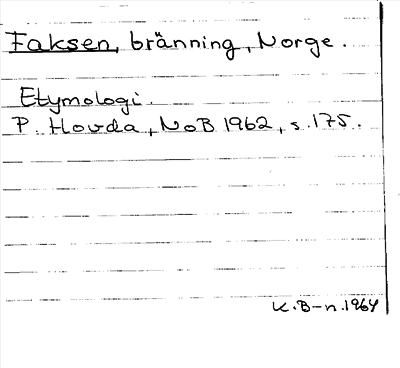 Faksen, bränning, Norge.
Etymologi.
P. Hovda, NoB 1962, s. 175.
K. B-n. 1964